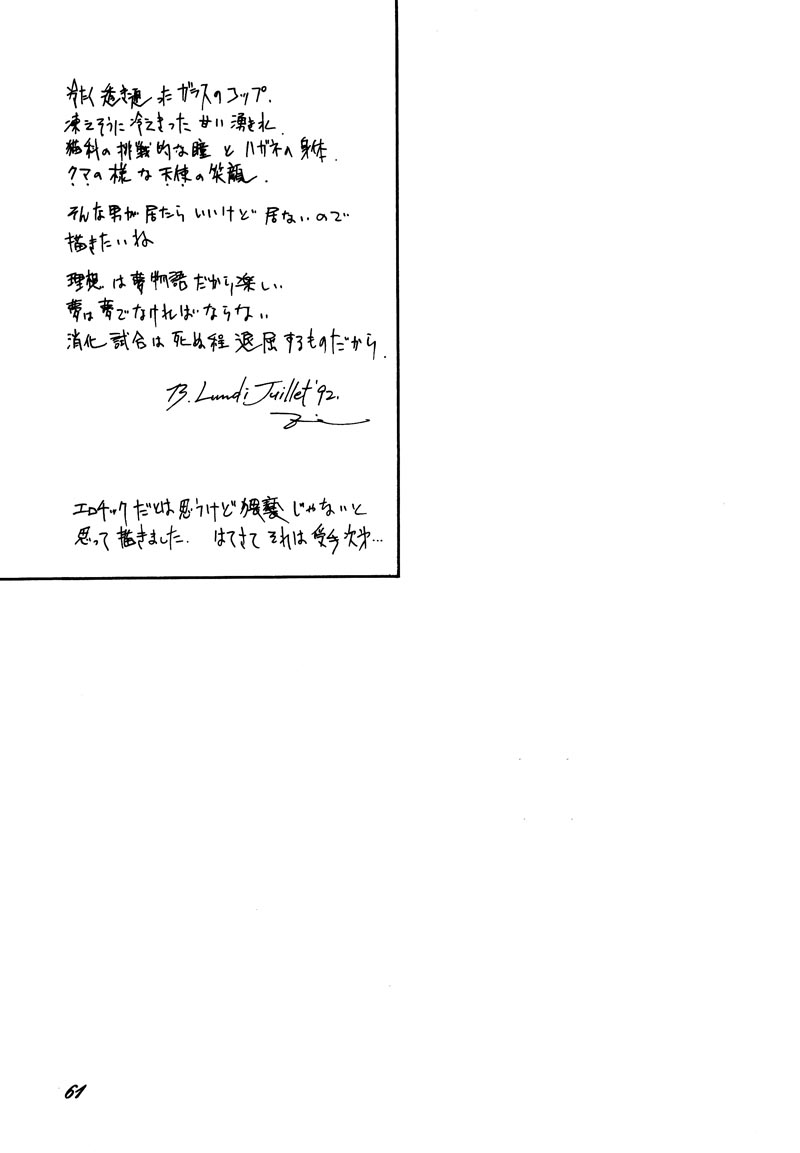 冷たく透き通ったガラスのコップ.
凍えそうに冷えきった甘い湧き水.
猫科の挑戦的な瞳とハガネの身体.
クマの様な天使の笑顔.
そんな男が居たらいいけど居ないので
描きたいね
理想は夢物語だから楽しい
夢は夢でなければならない
消化試合は死ぬ程退屈するものだから.
13. Lundi Juillet '92.
エロチックだとは思うけど猥褻じゃないと
思って描きました. はてさてそれは受手次第…
61